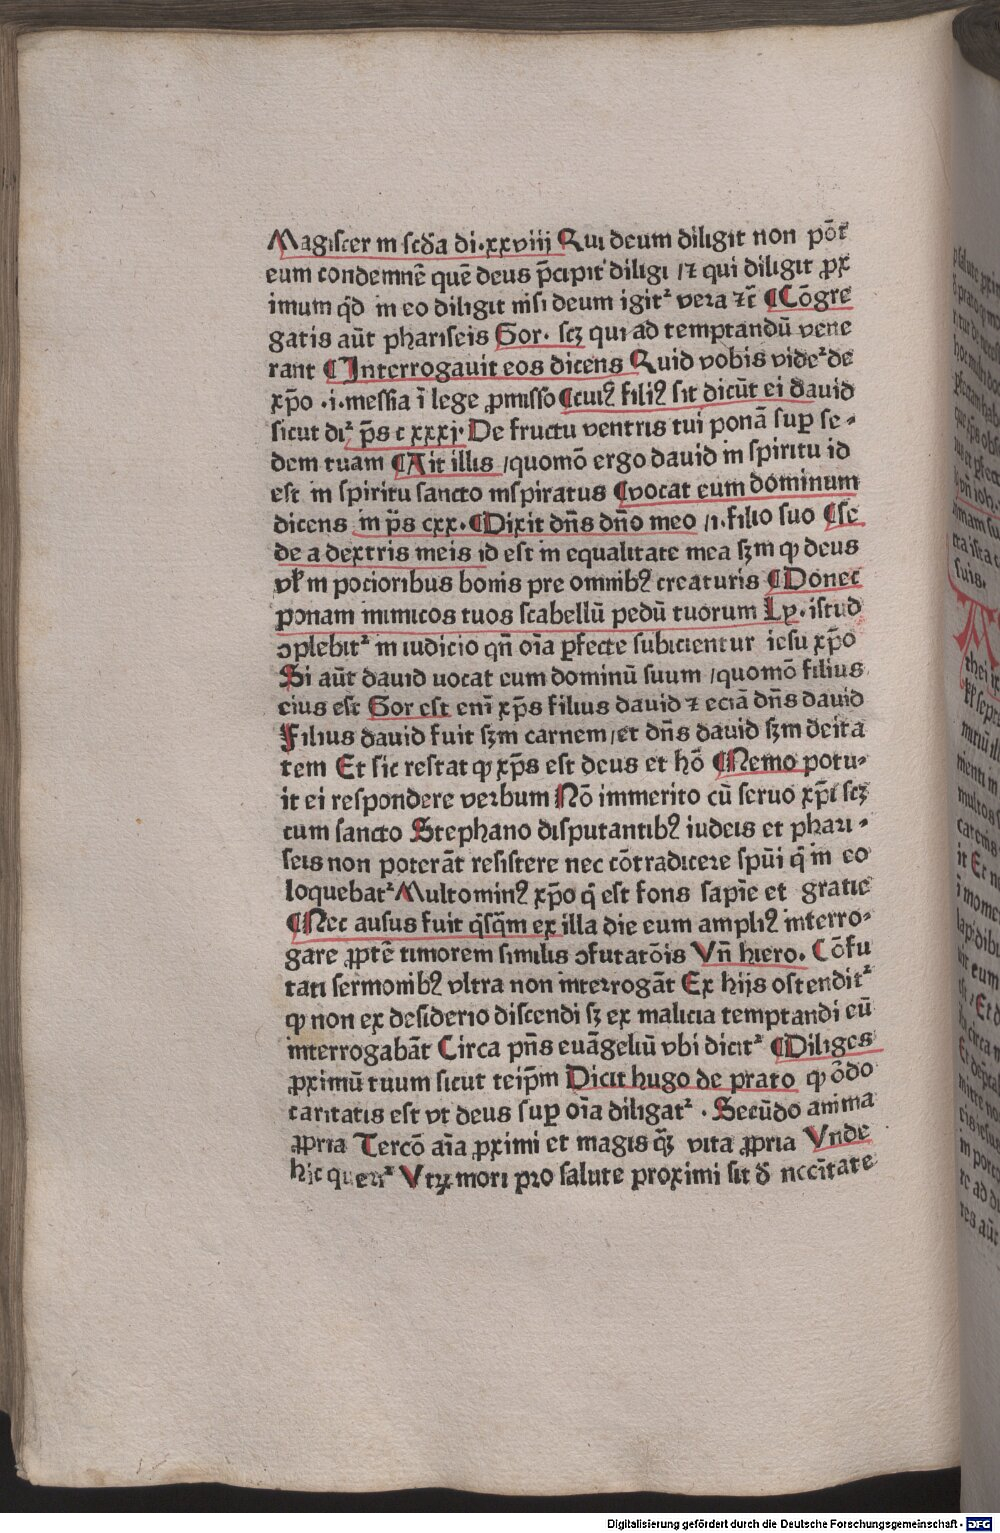 Magister in scďa di.xxviij Qui deum diligit non põt
eum condemnẽ quẽ deus p̃cipit diligi /⁊ qui diligit ꝓx
imum qď in eo diligit nisi deum igitꝛ vera ⁊c̃ ¶Cõgre
gatis aũt phariseis Gor. scꝫ qui ad temptandũ vene
rant ¶Interrogauit eos dicens Quid vobis videꝛ de
xp̃o .i. messia ĩ lege ꝓmisso ¶cuiꝰ filiꝰ sit dicũt ei dauid
sicut diꝛ p̃s c xxxj. De fructu ventris tui ponã suꝑ se-
dem tuam ¶Ait illis /quomõ ergo dauid in spiritu id
est in spiritu sancto inspiratus ¶vocat eum dominum
dicens in p̃s cxx. ¶Dixit dñs dño meo /i. filio suo ¶se
de a dextris meis id est in equalitate mea sꝫm ꝙ deus
vł in pocioribus bonis pre omnibꝰ creaturis ¶Donec
ponam inimicos tuos scabellũ pedũ tuorum Lx. istud
ↄplebitꝛ in iudicio qñ oĩa ꝑfecte subicientur iesu xp̃o
Si aũt dauid uocat eum dominũ suum /quomõ filius
eius est Gor est enĩ xp̃s filius dauid ⁊ eciã dñs dauid
Filius dauid fuit sꝫm carnem/et dñs dauid sꝫm deita
tem Et sic restat ꝙ xp̃s est deus et hõ ¶Nemo potu-
it ei respondere verbum Nõ immerito cũ seruo xp̃i scꝫ
cum sancto Stephano disputantibꝰ iudeis et phari-
seis non poterãt resistere nec cõtradicere spũi q̃ in eo
loquebatꝛ Multominꝰ xp̃o q̃ est fons sapĩe et gratie
¶Nec ausus fuit q̃sq̃m ex illa die eum ampliꝰ interro-
gare ꝓptẽ timorem similis ↄfutatõis Vñ hiero. Cõfu
tati sermonibꝰ vltra non interrogãt Ex hijs ostenditꝛ
ꝙ non ex desiderio discendi sꝫ ex malicia temptandi eũ
interrogabãt Circa pñs euãgeliũ vbi dicitꝛ ¶Diliges
ꝓximũ tuum sicut teip̃m Dicit hugo de prato ꝙ õdo
caritatis est vt deus suꝑ oĩa diligatꝛ . Secũdo anima
ꝓpria Tercõ aĩa ꝓximi et magis q̃ꝫ vita ꝓpria Vnde
hic queriꝛ Vtꝝ mori pro salute proximi sit ď nccĩtate
Digitalisierung gefördert durch die Deutsche Forschungsgemeinschaft - DFG